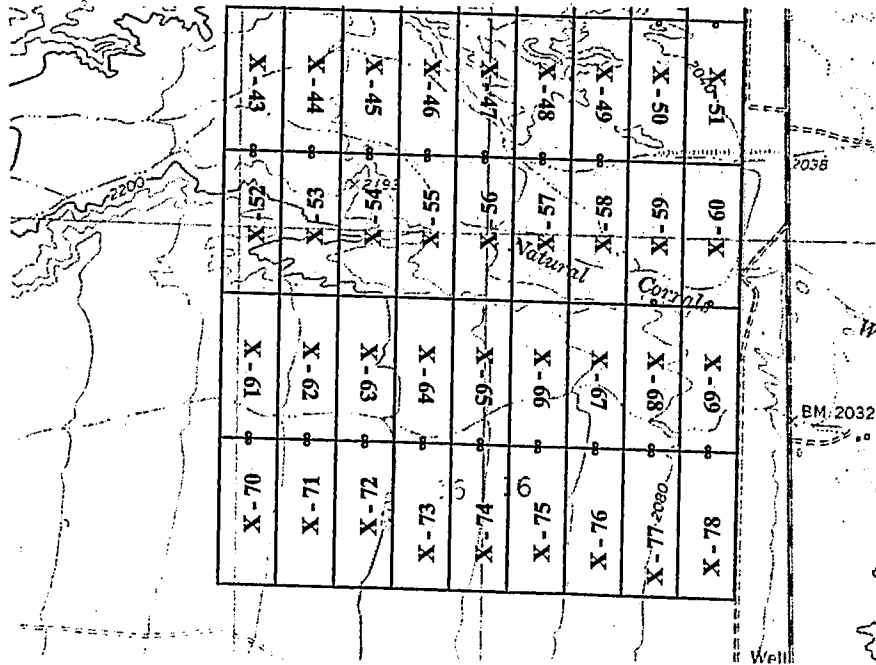 X - 43
X - 44
X - 45
X - 46
X - 47
X - 48
X - 49
X - 50
X - 51
X - 52
X - 53
X - 54
X - 55
X - 56
X - 57
X - 58
X - 59
X - 60
X - 61
X - 62
X - 63
X - 64
X - 65
X - 66
X - 67
X - 68
X - 69
X - 70
X - 71
X - 72
X - 73
X - 74
X - 75
X - 76
X - 77
X - 78
2200
2038
Natural
Corrals
BM 2032
2080
16
Well